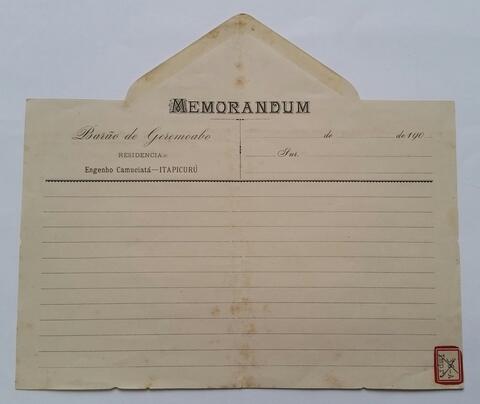 MEMORANDUM
Barão de Geremoabo
RESIDENCIA:
Engenho Camuciatá—ITAPICURÚ
de de 190
Snr.